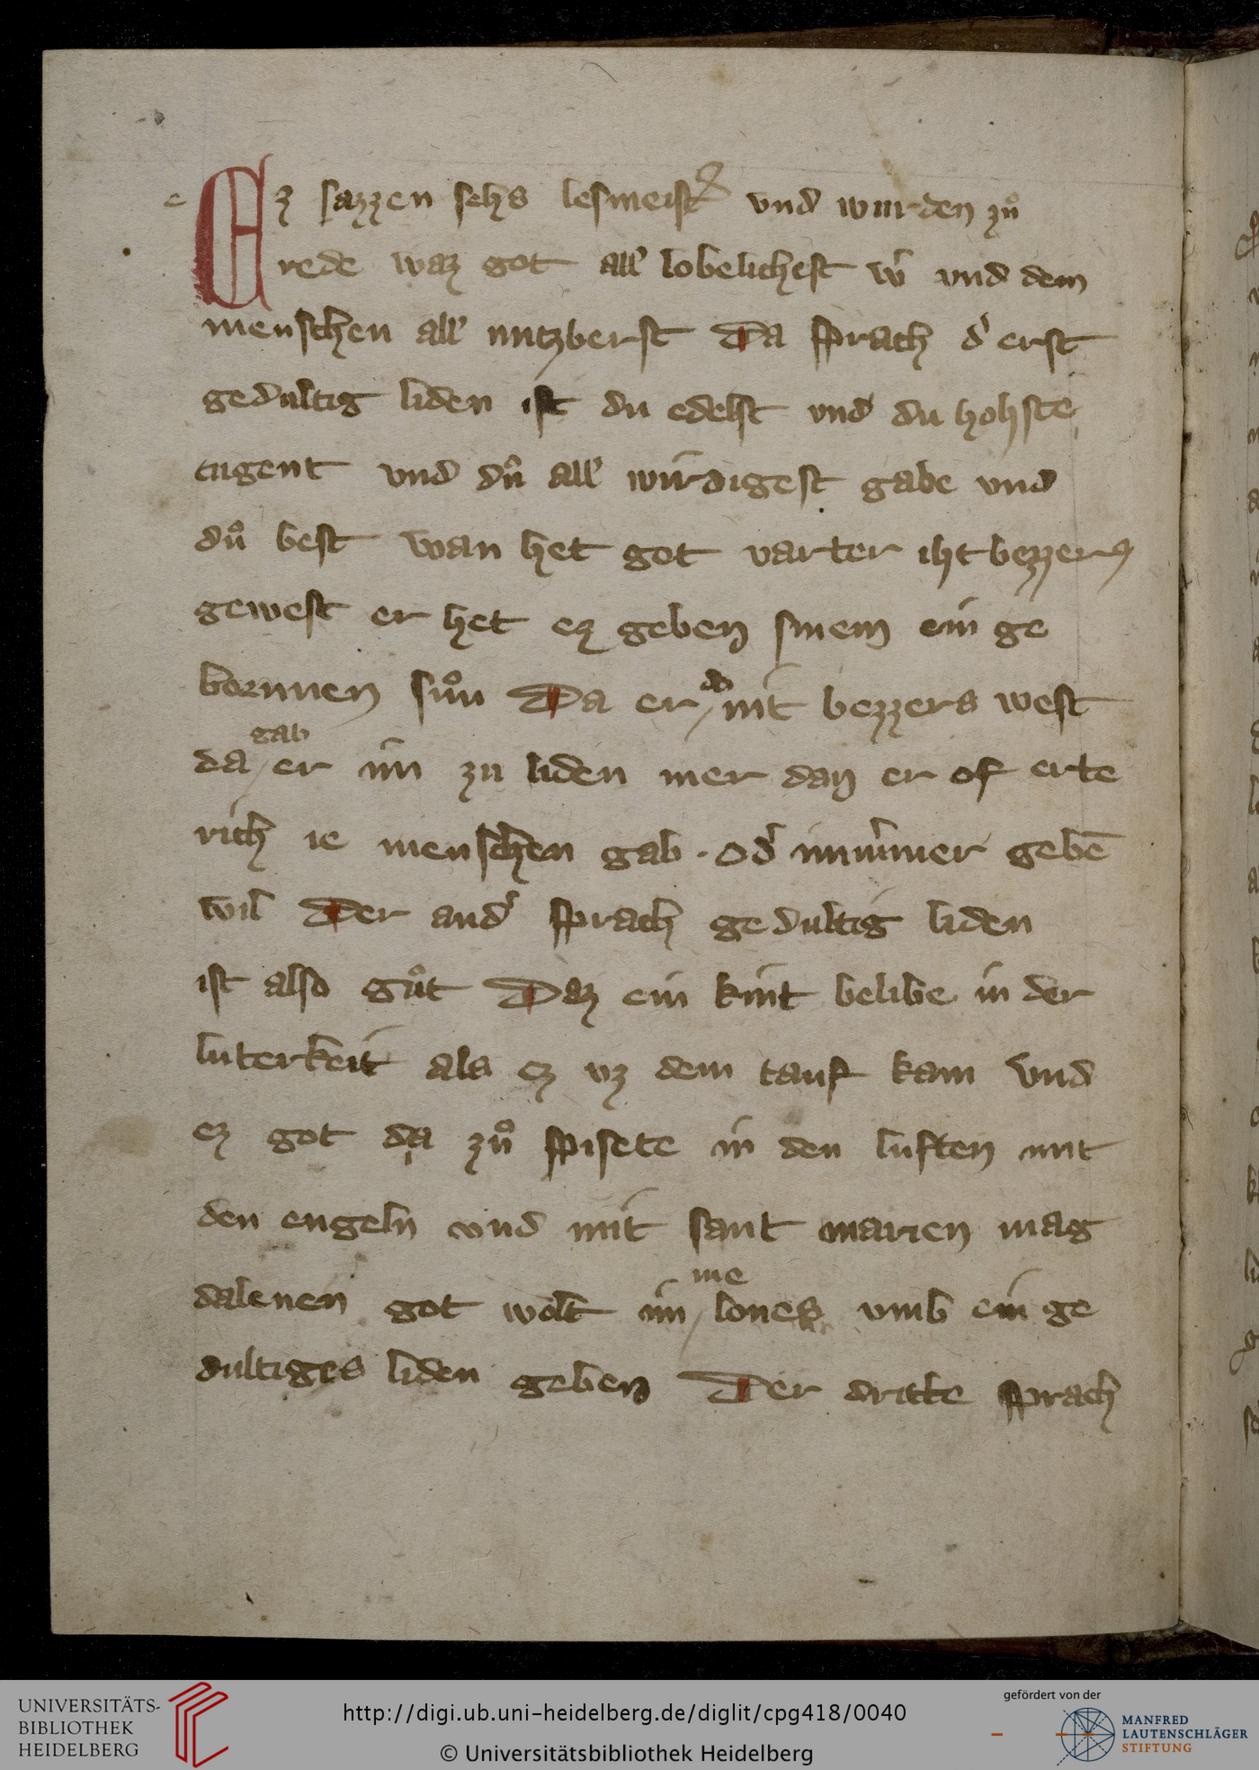 Ez sazzen sehs lesmeist̾ und wurden zuͦ
rede waz got all̾ lobelichest w̾ vnd dem
menschen all̾ nutzberst Da sprach d̾ erst
gedultig liden ist du edelst vnd du hohste
tugent vnd duͤ all̾ wirdigest gabe vnd
duͦ best wan het got vatter iht bezzers
gewest er het ez geben sinem ein ge
bornnen suͦn Da er do nit bezzers west
da gab er im zu liden mer dan er of erte
rich ie menschen gab · od̾ nimm̾mer gebē
wil Der and̾ sprach gedultig liden
ist also guͦt Daz ein kint belibe in der
luterkeit als ez vz dem tauf kam Vnd
ez got da zuͦ spisete in den luften mit
den engeln vnd mit sant marien mag
dalenen got wolt im me lones vmb ein ge
dultiges liden geben Der dritte sprach
UNIVERSITÄTS-
BIBLIOTHEK
HEIDELBERG
http://digi.ub.uni-heidelberg.de/diglit/cpg418/0040
© Universitätsbibliothek Heidelberg
gefördert von der
MANFRED
LAUTENSCHLÄGER
STIFTUNG